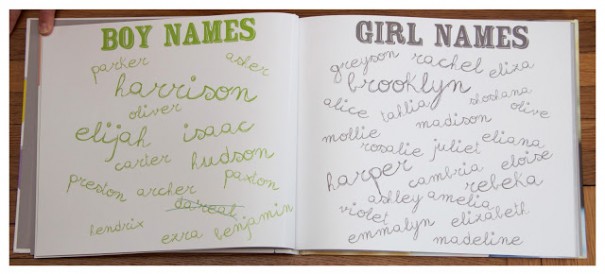 BOY NAMES
parker asher
harrison
oliver
elijah isaac
carter hudson
preston archer paxton
da real
hendrix ezra benjamin
GIRL NAMES
greyson rachel eliza
brooklyn
alice tahlia shoshana olive
mollie madison
rosalie juliet eliana
harper cambria eloise
ashley amelia rebeka
violet emmalyn elizabeth
madeline